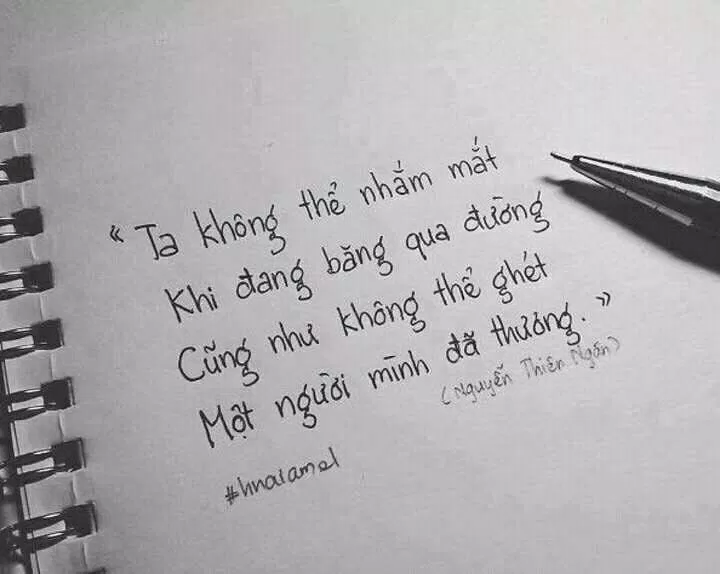 “Ta không thể nhắm mắt
Khi đang băng qua đường
Cũng như không thể ghét
Một người mình đã thương.”
(Nguyễn Thiên Ngân)
#hnaiamel